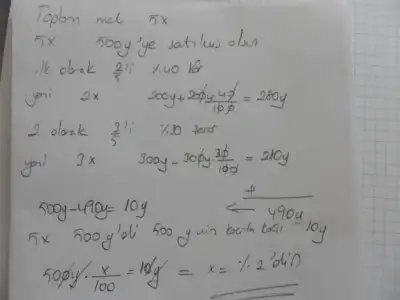 Toplam mal 5x
5x 500y'ye satılmış olsun
ilk olarak 2/5'i %40 kâr
yani 2x 200y + 200y.40/100 = 280y
2 olarak 3/5'i %30 zarar
yani 3x 300y - 300y.30/100 = 210y
+
500y - 490y = 10y ← 490y
5x 500y'di 500y nin kaçta kaçı 10y
500y. x/100 = 10y = x = %2'dir